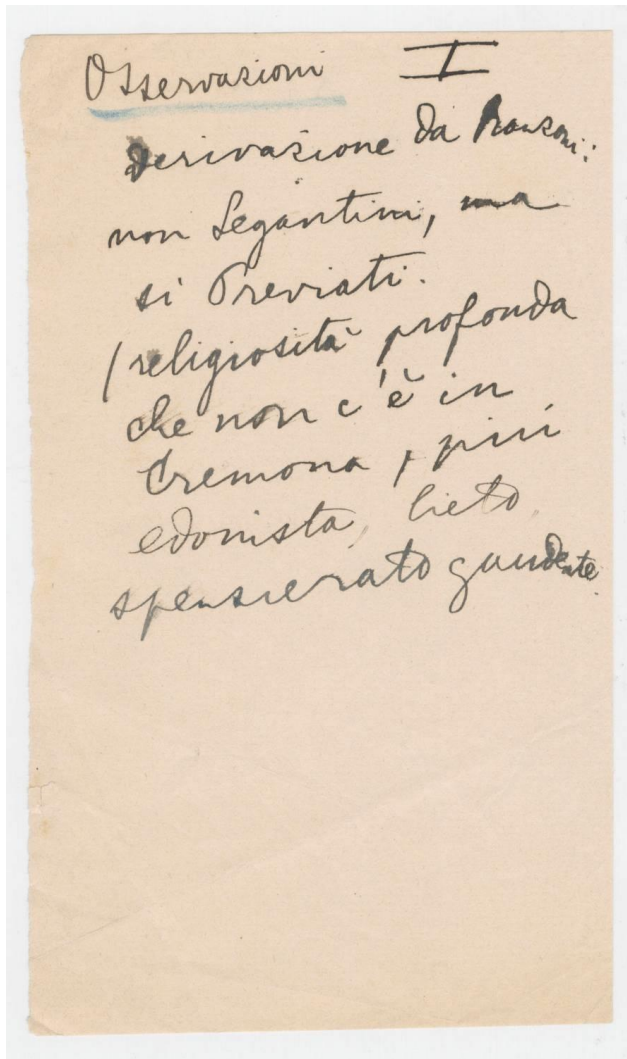 Osservazioni I
Derivazione da Ranzoni:
non Segantini, ma
si Previati.
(religiosità profonda
che non c'è in
Cremona, più
edonista, lieto,
spensierato gaudente.